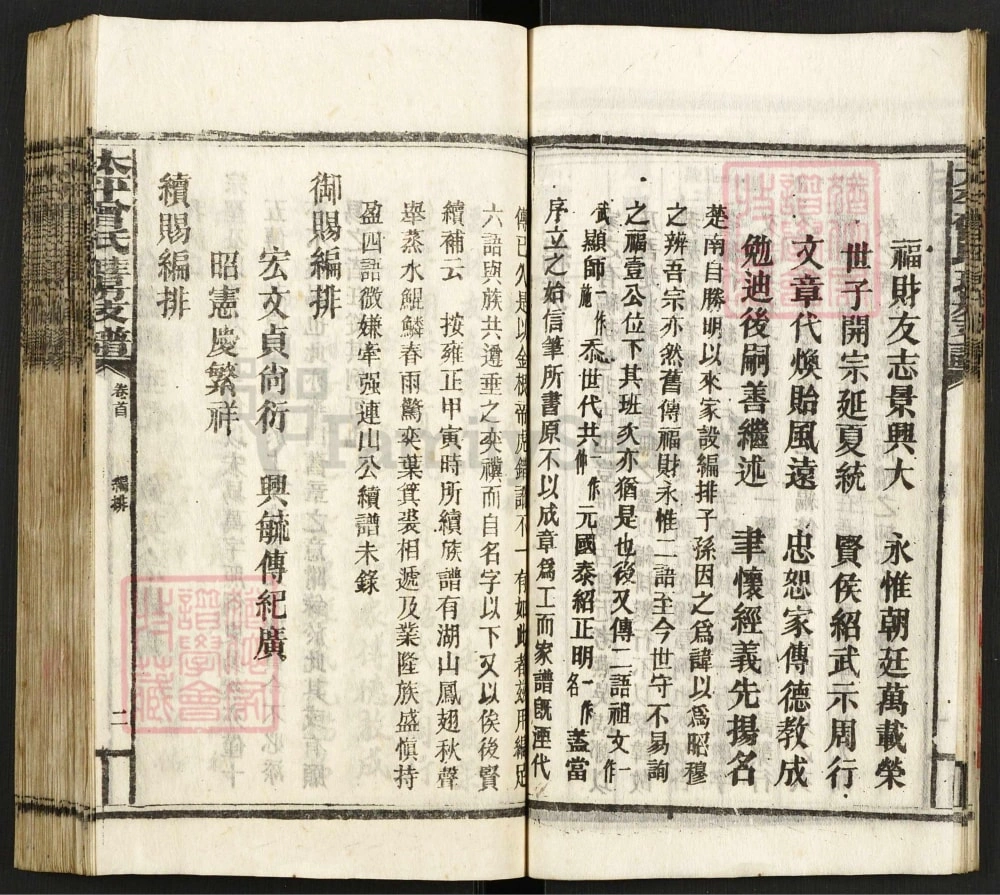 福財友志景興大　永惟朝廷萬載榮
世子開宗延夏統　賢侯紹武示周行
文章代煥貽風遠　忠恕家傳德教成
勉迪後嗣善繼述　聿懷經義先揚名
楚南自勝明以來家設編排子孫因之為諱以為昭穆
之辨吾宗亦然舊傳福財永惟二語至今世守不易詢
之福壹公位下其班次亦猶是也後又傳二語祖文一作
武顯師一作施忝世代共一作仲元國泰紹正明一作名蓋當
序立之始信筆所書原不以成章為工而家譜既湮代
傳已久是以金根帝虎錯訛不一有如此者茲用編足
六語與族共遵垂之奕禩而自名字以下又以俟後賢
續補云　按雍正甲寅時所續族譜有湖山鳳翅秋聲
舉蒸水鯤鱗春雨驚奕葉箕裘相遞及業隆族盛慎持
盈四語微嫌牽强連山公續譜未錄
御賜編排
宏文貞尚衍　興毓傳紀廣
昭憲慶繁祥
續賜編排
太平曾氏
支譜
卷首
編排
二
FamilySearch